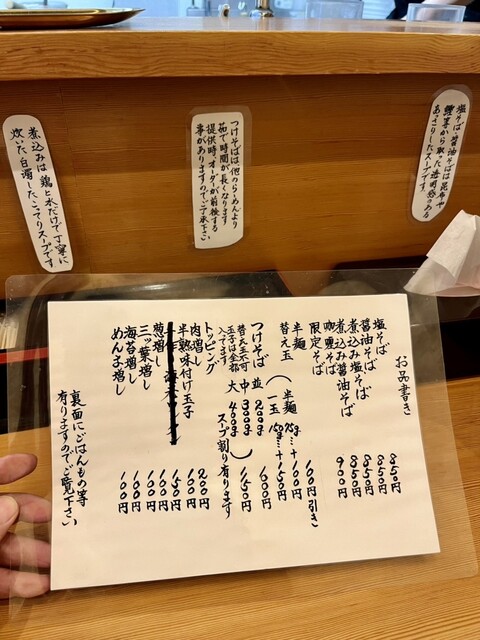 塩そば、醤油そばは昆布や
鰹等から取った透明感のある
あっさりしたスープです
つけそばは他のらーめんより
茹で時間が長くなります
提供時、オーダーが前後する
事がありますのでご了承下さい
煮込みは鶏と水だけで丁寧に
炊いた白濁したこってりスープです
お品書き
塩そば 850円
醤油そば 850円
煮込み塩そば 850円
煮込み醤油そば 850円
咖喱そば 900円
限定そば
半麺 100円引き
替え玉 半麺75g…+100円
一玉150g…+150円
つけそば 並 200g
替え玉不可 中 300g
玉子は全部 大 400g 150円
入ってます スープ割り有ります
トッピング
肉増し 200円
半熟味付け玉子 100円
150円
葱増し 100円
三ツ葉増し 100円
海苔増し 100円
めんま増し 100円
裏面にごはんもの等
有りますのでご覧下さい